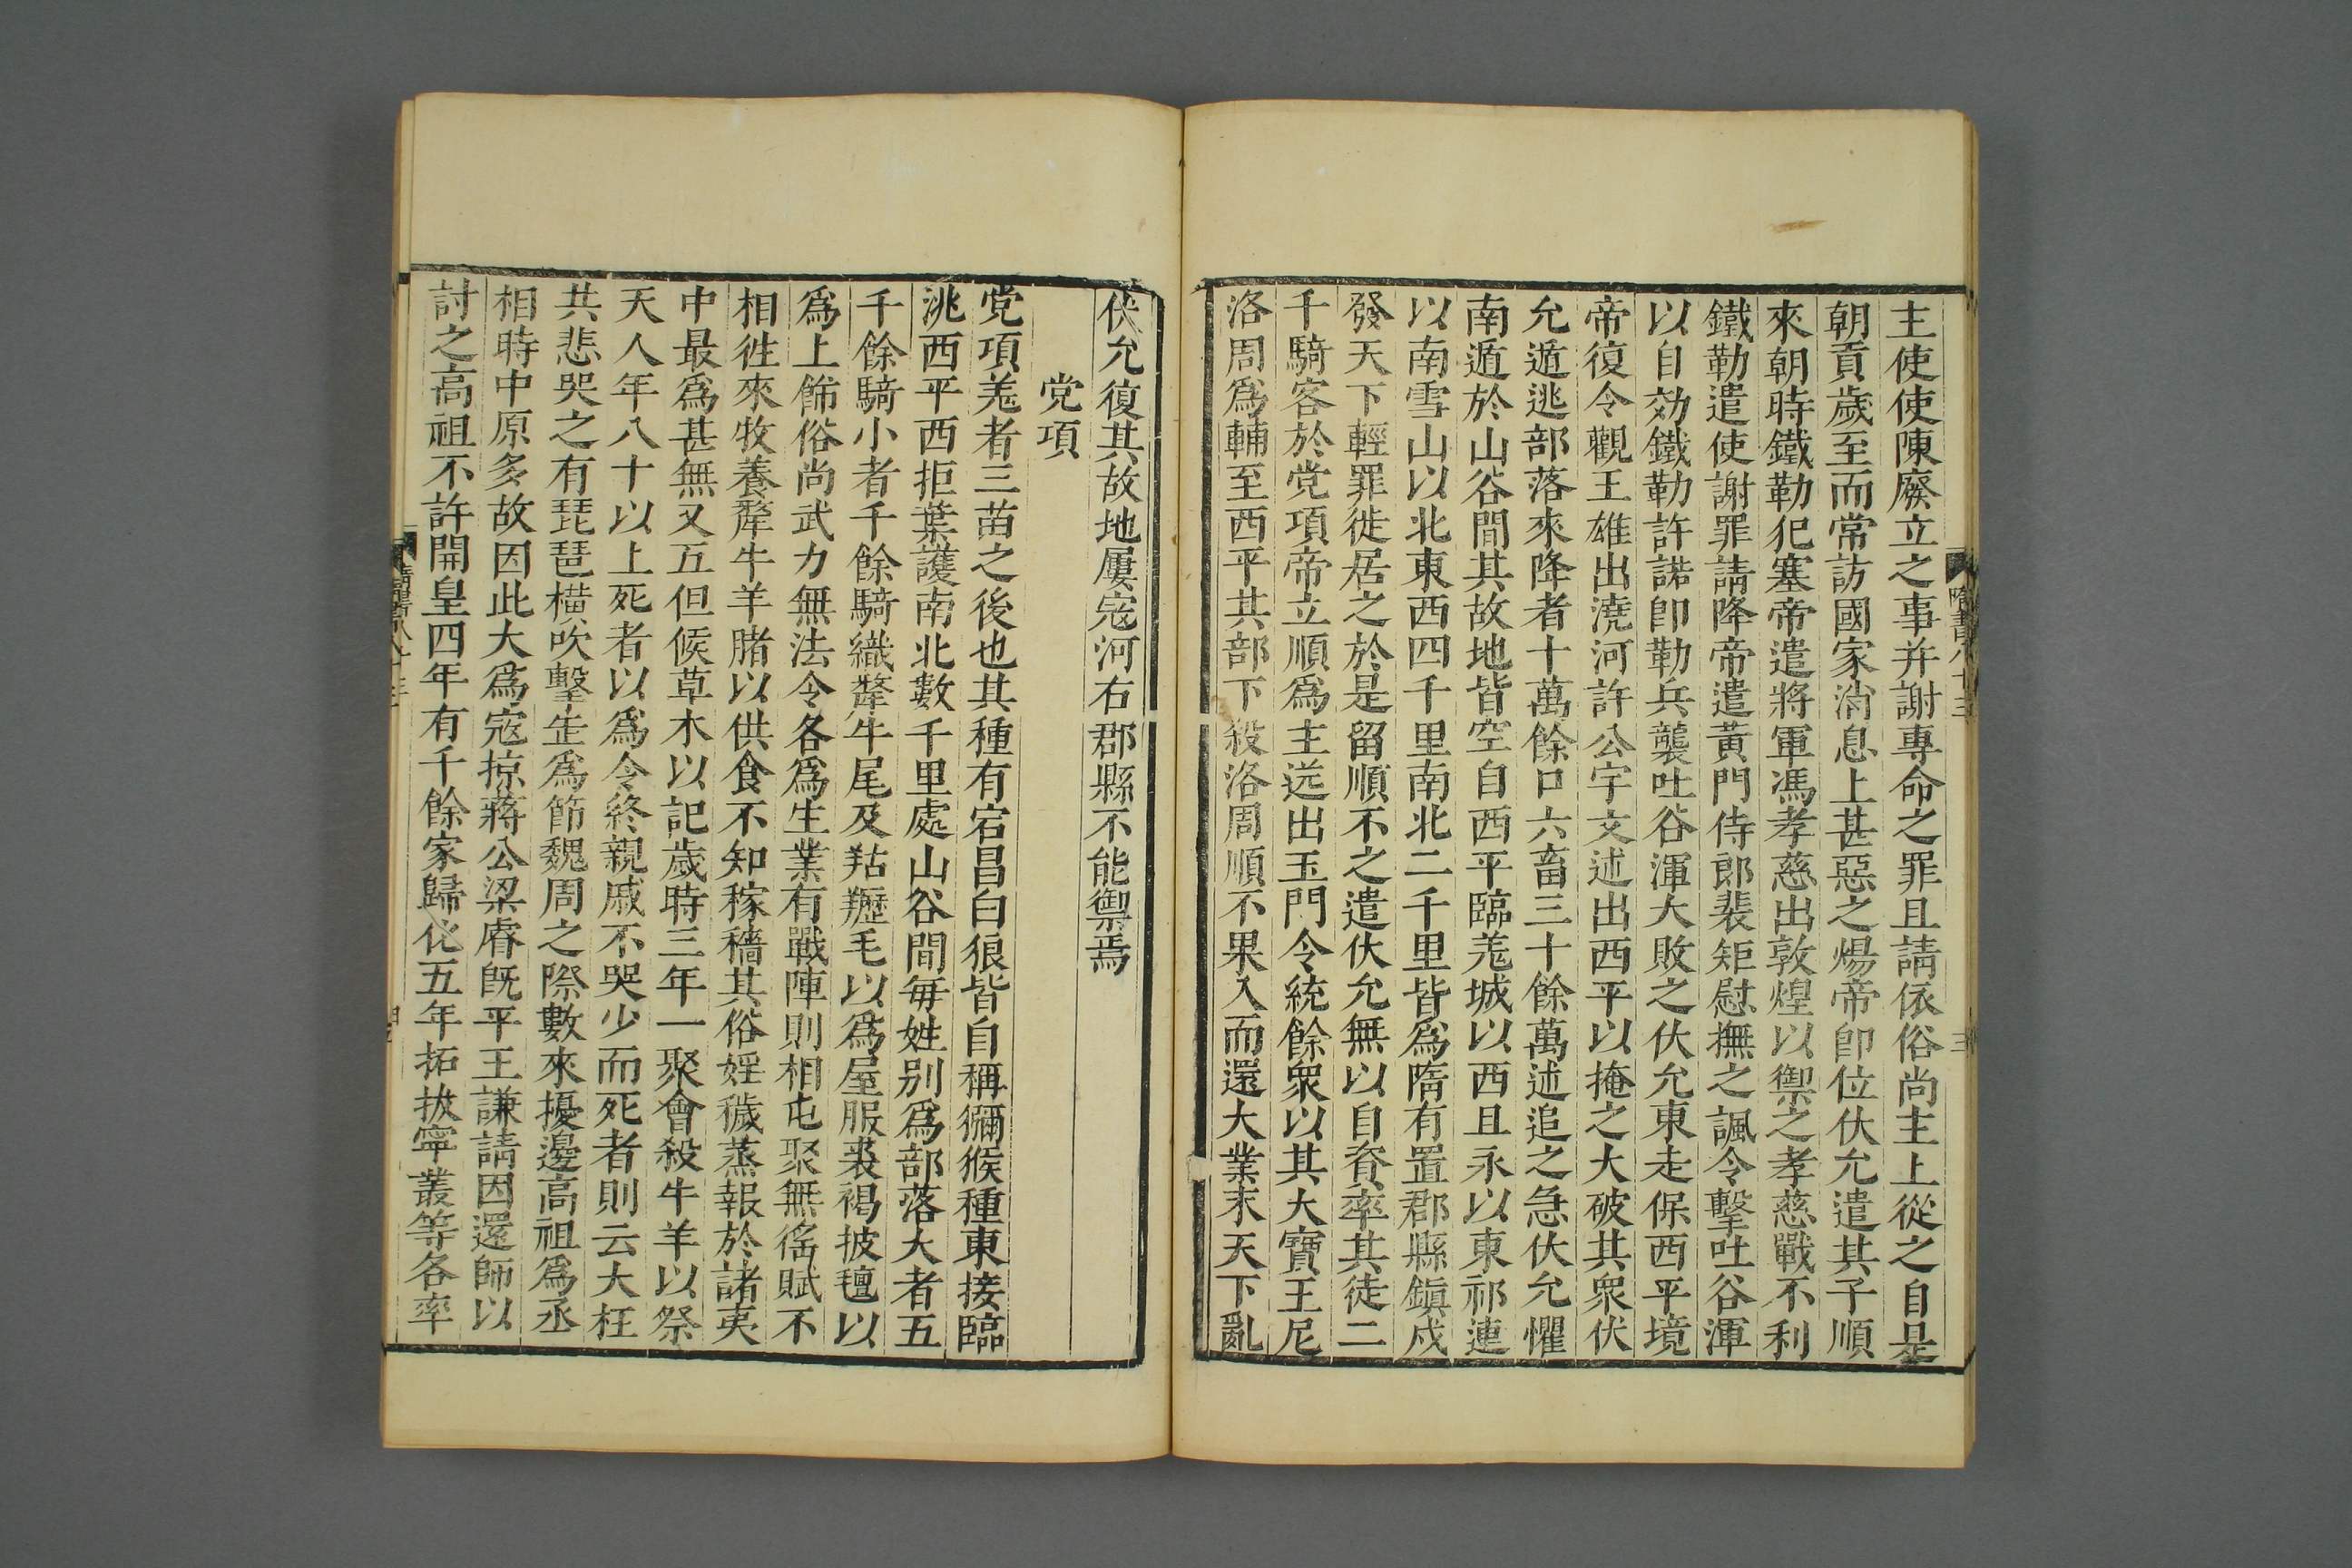 主使使陳廢立之事并謝專命之罪且請依俗尚主上從之自是
朝貢歲至而常訪國家消息上甚惡之煬帝卽位伏允遣其子順
來朝時鐵勒犯塞帝遣將軍馮孝慈出敦煌以禦之孝慈戰不利
鐵勒遣使謝罪請降帝遣黃門侍郎裴矩慰撫之諷令擊吐谷渾
以自効鐵勒許諾卽勒兵襲吐谷渾大敗之伏允東走保西平境
帝復令觀王雄出澆河許公宇文述出西平以掩之大破其衆伏
允遁逃部落來降者十萬餘口六畜三十餘萬述追之急伏允懼
南遁於山谷間其故地皆空自西平臨羌城以西且末以東祁連
以南雪山以北東西四千里南北二千里皆爲隋有置郡縣鎭戍
發天下輕罪徙居之於是留順不之遣伏允無以自資率其徒二
千騎客於党項帝立順爲主送出玉門令統餘衆以其大寶王尼
洛周爲輔至西平其部下殺洛周順不果入而還大業末天下亂
伏允復其故地屢寇河右郡縣不能禦焉
党項
党項羌者三苗之後也其種有宕昌白狼皆自稱獼猴種東接臨
洮西平西拒葉護南北數千里處山谷間每姓別爲部落大者五
千餘騎小者千餘騎織犛牛尾及䍩䍽毛以爲屋服裘褐披氊以
爲上飾俗尚武力無法令各爲生業有戰陣則相屯聚無徭賦不
相徃來牧養犛牛羊豬以供食不知稼穡其俗婬穢蒸報於諸夷
中最爲甚無文五但候草木以記歲時三年一聚會殺牛羊以祭
天人年八十以上死者以爲令終親戚不哭少而死者則云大枉
共悲哭之有琵琶橫吹擊缶爲節魏周之際數來擾邊高祖爲丞
相時中原多故因此大爲寇掠蔣公梁睿旣平王謙請因還師以
討之高祖不許開皇四年有千餘家歸化五年拓拔寧叢等各率